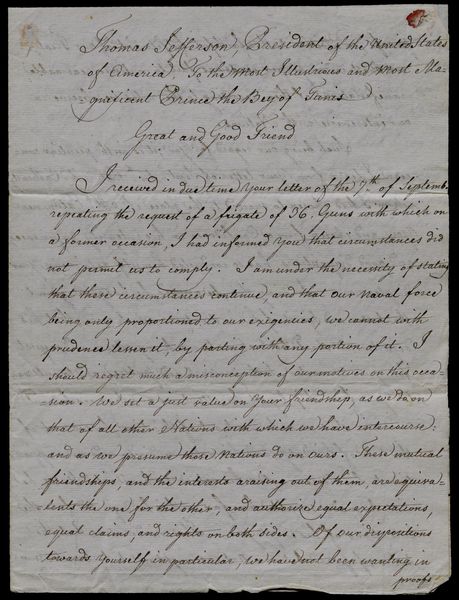 Thomas Jefferson, President of the United States
of America, To the Most Illustrious and Most Ma-
gnificent Prince the Bey of Tunis
Great and Good Friend
I received in due time your letter of the 7th of Septemb.
repeating the request of a frigate of 36. Guns with which on
a former occasion, I had informed you that circumstances did
not permit us to comply. I am under the necessity of stating
that those circumstances continue, and that our naval force
being only proportioned to our exigencies, we cannot with
prudence lessen it, by parting with any portion of it. I
should regret much a misconception of our motives on this occa-
-sion. We set a just value on your friendship, as we do on
that of all other Nations with which we have intercourse:
and as we presume those Nations do on ours. These mutual
friendships, and the interests araising out of them, are equiva-
lents the one for the other, and authorize equal expectations,
equal claims, and rights on both sides. Of our dispositions
towards yourself in particular, we have not been wanting in
proofs